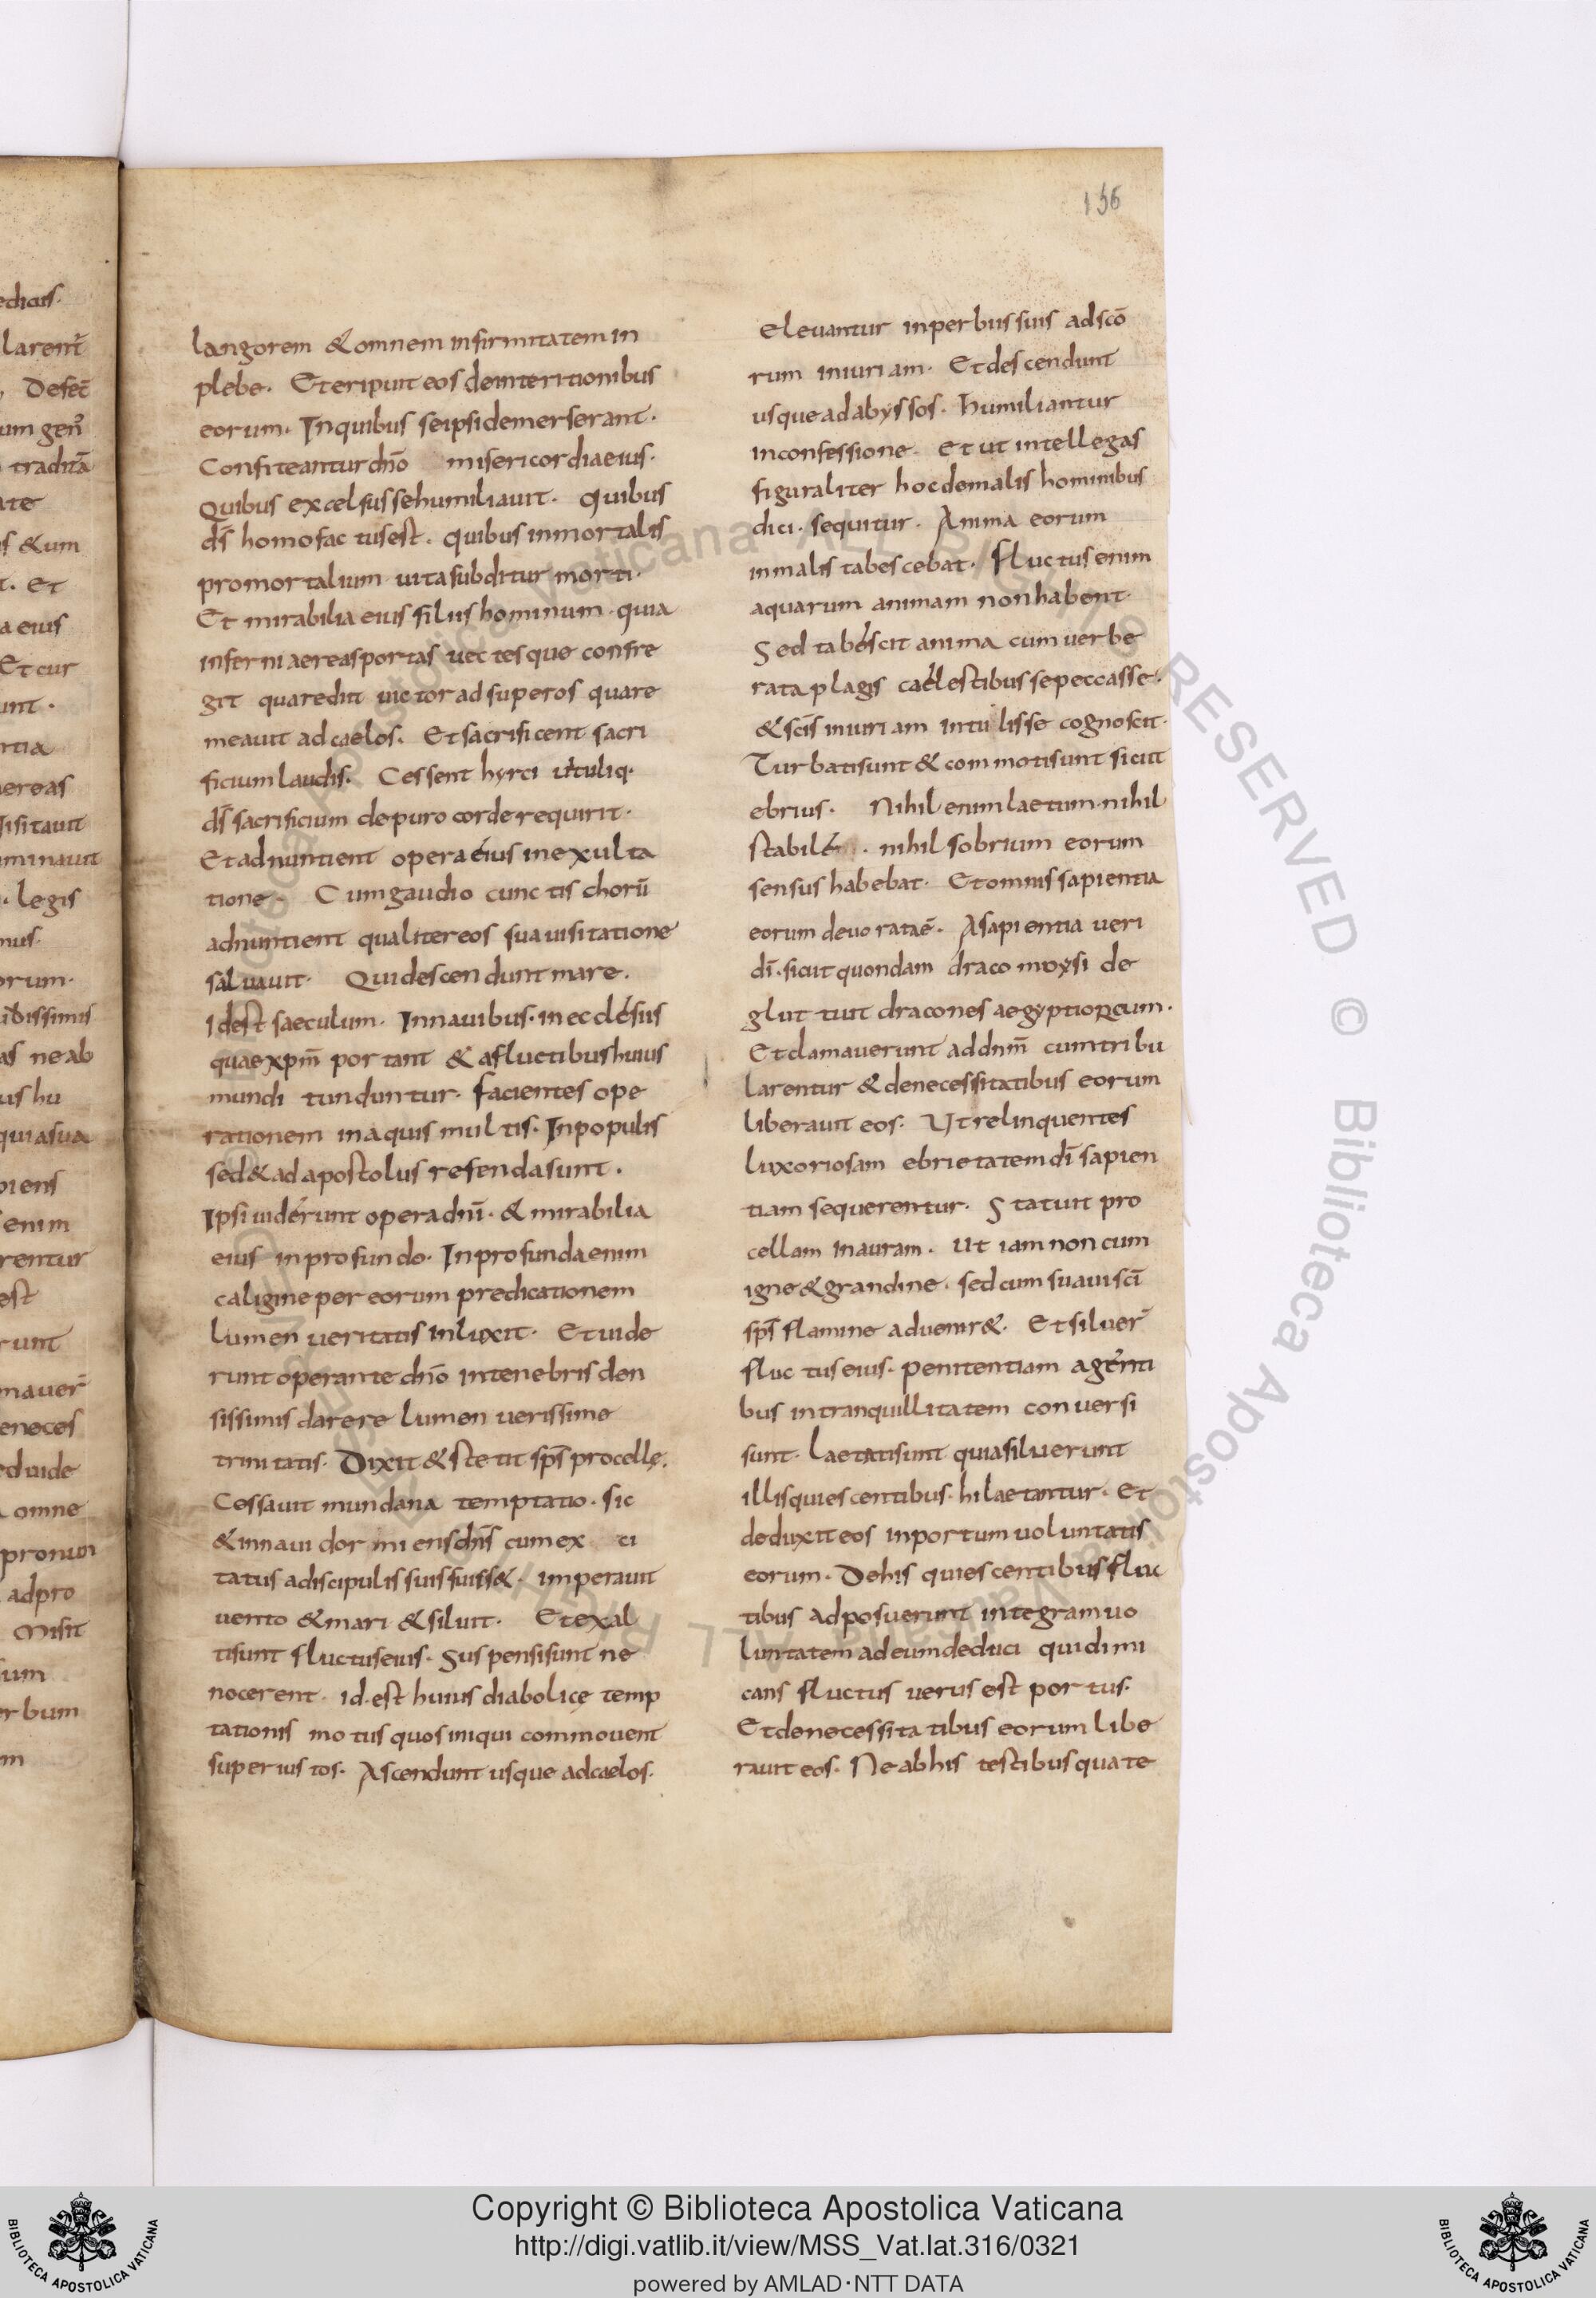 156
langorem & omnem infirmitatem in
plebe. Et eripuit eos de interitionibus
eorum. In quibus se ipsi demerserant.
Confiteantur dn̄o misericordiae eius.
Quibus excelsus se humiliauit. quibus
d̄s homo factus est. quibus inmortalis
pro mortalium uita subditur morti.
Et mirabilia eius filiis hominum. quia
inferni aereas portas uectesque confre
git qua rediit uictor ad superos quare
meauit ad caelos. Et sacrificent sacri
ficium laudis. Cessent hyrci uituliq.
d̄s sacrificium de puro corde requirit.
Et adnuntient opera eius in exulta
tione. Cum gaudio cunctis chorū
adnuntient qualiter eos sua uisitatione
saluauit. Qui descendunt mare.
Id est saeculum. In nauibus. in eclesiis
quae xpm̄ portant & a fluctibus huius
mundi tunduntur. facientes ope
rationem in aquis multis. In populis
sed & ad apostolus referenda sunt.
Ipsi uiderunt opera dn̄i. & mirabilia
eius in profundo. In profunda enim
caligine per eorum predicationem
lumen ueritatis inluxit. Et uide
runt operante dn̄o in tenebris den
sissimis clarere lumen uerissime
trinitatis. Dixit & stetit sp̄s procellę.
Cessauit mundana temptatio. sic
& in naui dormiens dn̄s cum ex ci
tatus a discipulis suis fuiss&. imperauit
uento & mari & siluit. Et exal
ti sunt fluctus eius. Suspensi sunt ne
nocerent. id. est huius diabolicę temp
tationis motus quos iniqui commouent
super iustos. Ascendunt usque ad caelos.
eleuantur in perbiis suis ad scō
rum iniuriam. Et descendunt
usque ad abyssos. humiliantur
in confessione. et ut intellegas
figuraliter hoc de malis hominibus
dici. sequitur. Anima eorum
in malis tabescebat. fluctus enim
aquarum animam non habent.
Sed tabescit anima cum uerbe
rata plagis caelestibus se peccasse.
& sc̄is iniuriam intulisse cognoscit.
Turbati sunt & commoti sunt sicut
ebrius. Nihil enim laetum. nihil
stabile. nihil sobrium eorum
sensus habebat. Et omnis sapientia
eorum deuorata ē. A sapientia ueri
dī. sicut quondam draco moysi de
gluttiit dracones aegyptiorum.
Et clamauerunt ad dnm̄ cum tribu
larentur & de necessitatibus eorum
liberauit eos. Ut relinquentes
luxoriosam ebrietatem dī sapien
tiam sequerentur. Statuit pro
cellam in auram. ut iam non cum
igne & grandine. sed cum suaui sc̄i
sp̄s flamine aduenir&. Et siluer̄
fluctus eius. penitentiam agenti
bus in tranquillitatem conuersi
sunt. Laetati sunt quia siluerunt
illis quiescentibus. hilaetantur. et
deduxit eos in portum uoluntatis
eorum. De his quiescentibus fluc
tibus adposuerunt integram uo
luntatem ad eum deduci qui dimi
cans fluctus uerus est portus.
Et de necessitatibus eorum libe
rauit eos. Ne ab his testibus quate
Copyright © Biblioteca Apostolica Vaticana
http://digi.vatlib.it/view/MSS_Vat.lat.316/0321
powered by AMLAD·NTT DATA